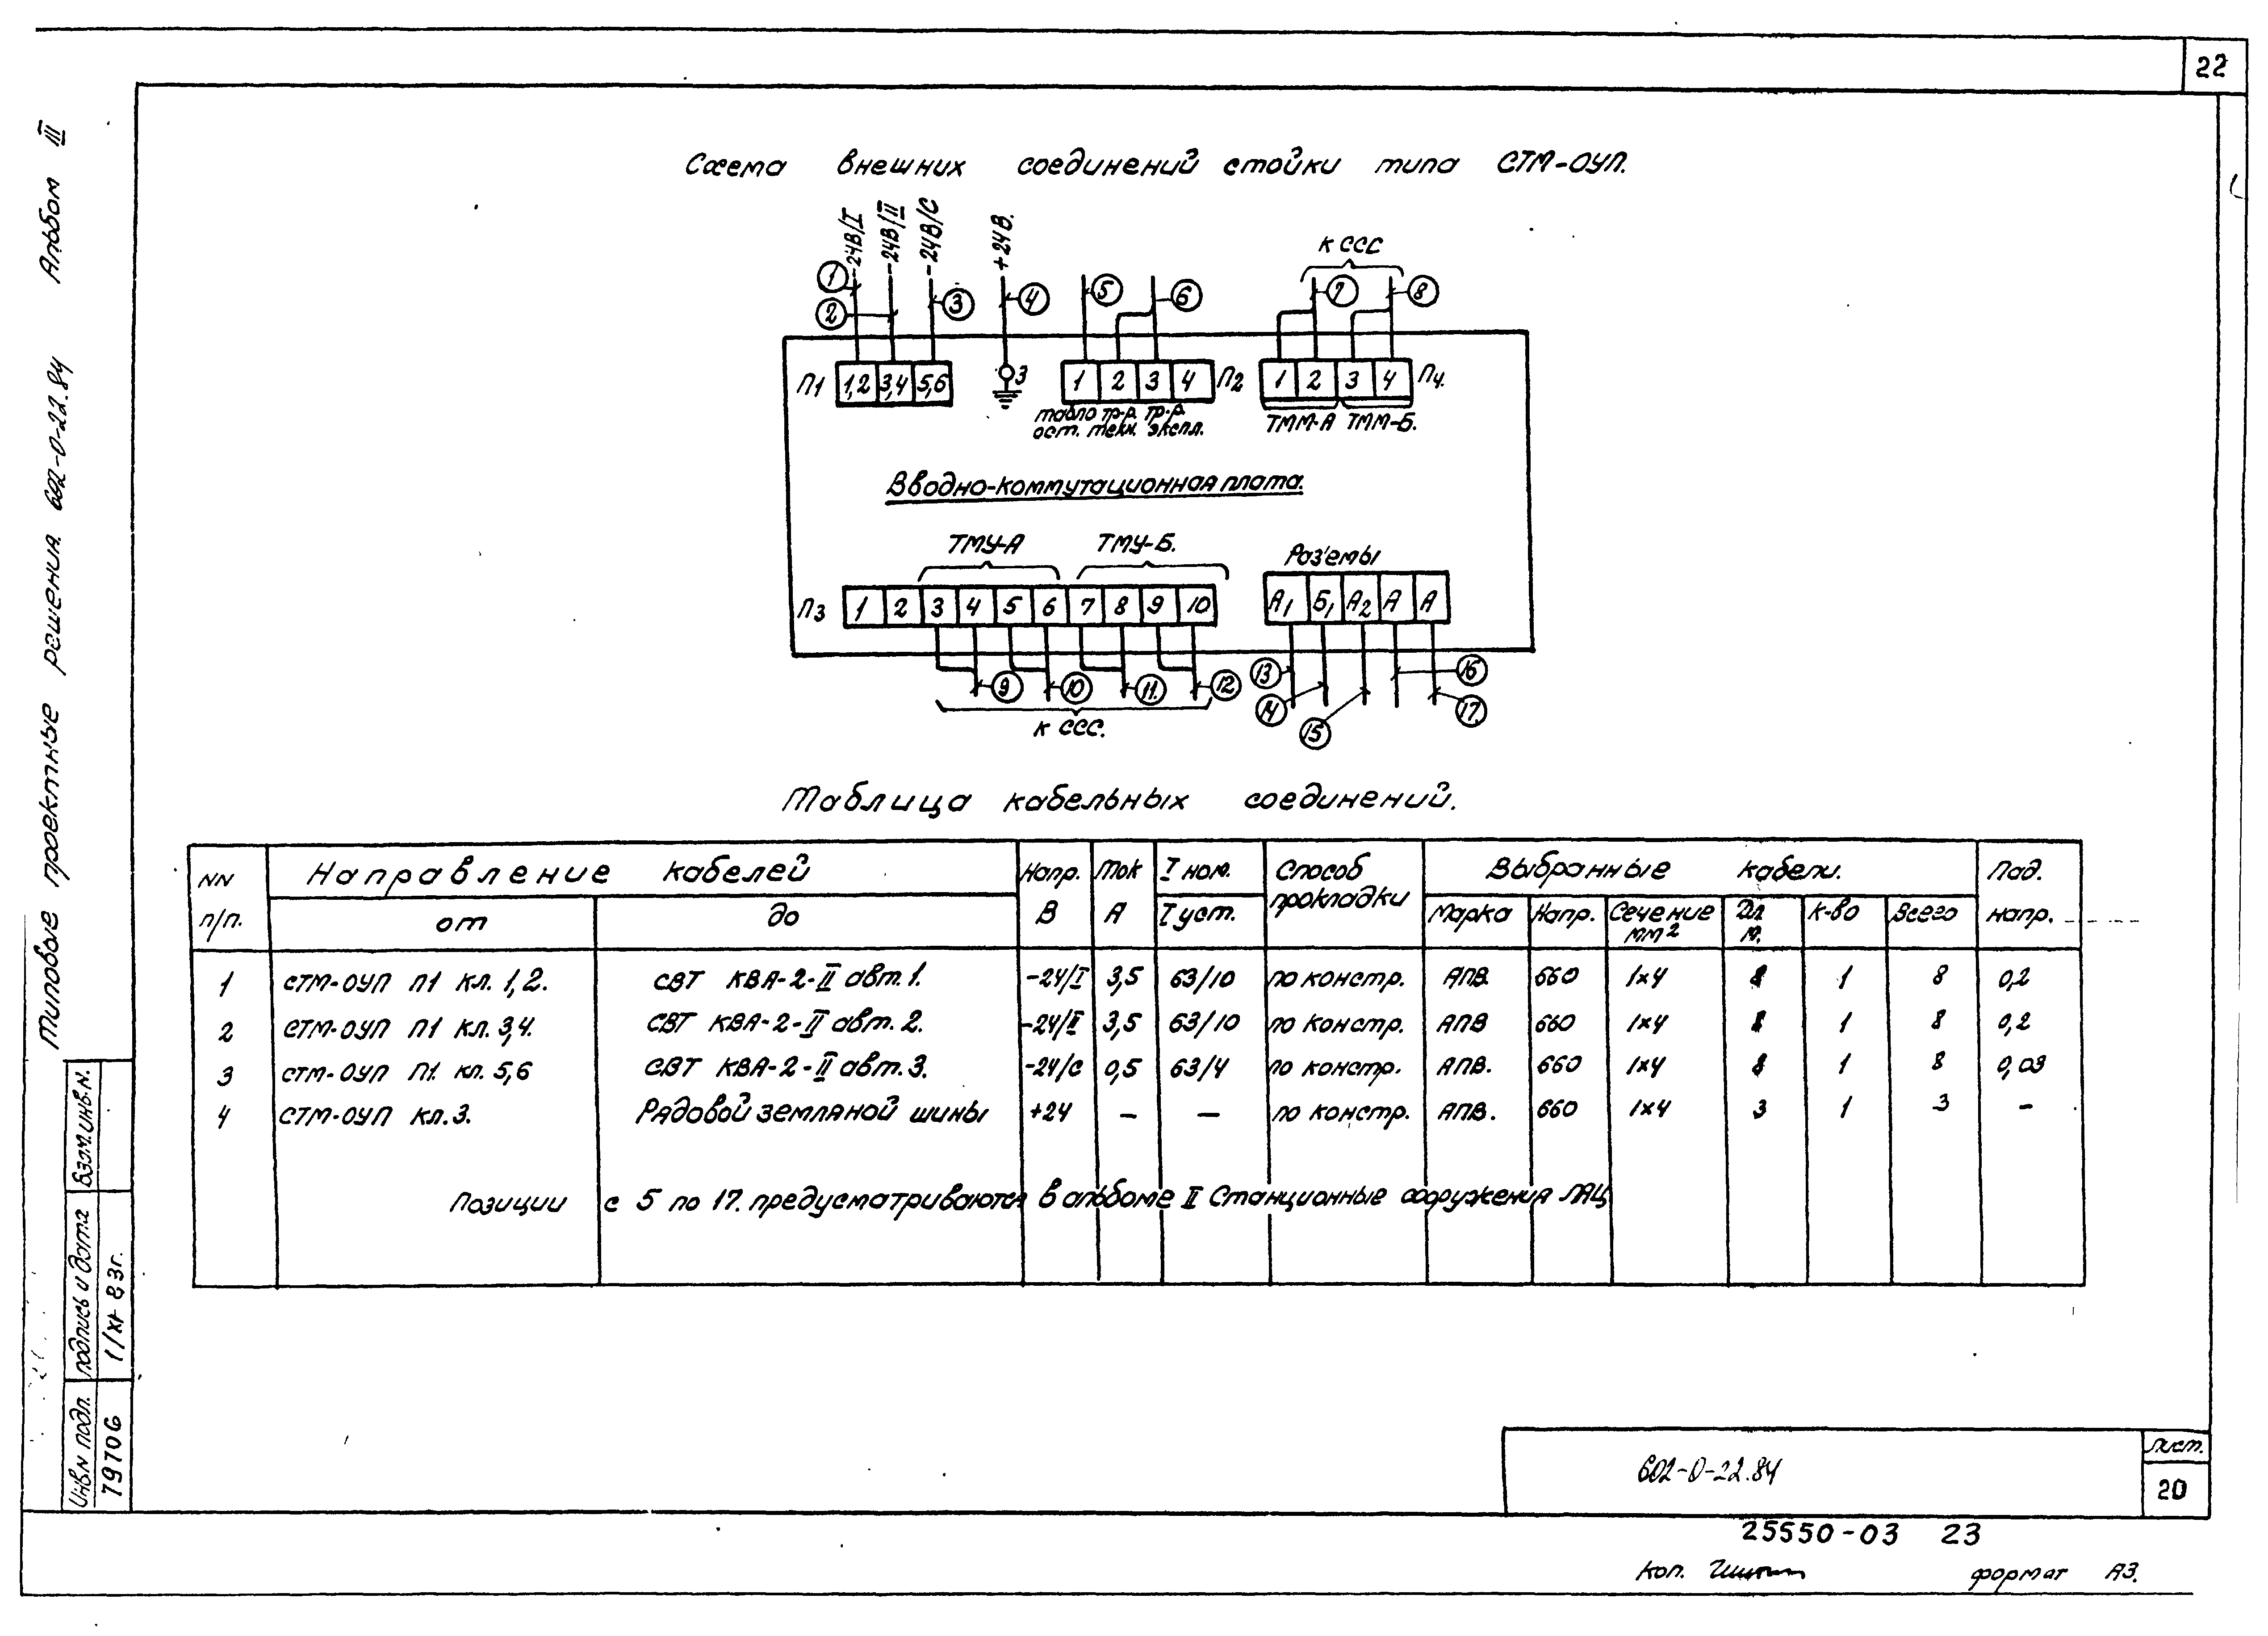 22
Схема внешних соединений стойки типа СТМ-ОУП.
-24В/I -24В/II -24В/С +24В.
к ССС
1 2 3 4 5 6 7 8
П1 1,2 3,4 5,6 З 1 2 3 4 П2 1 2 3 4 П4.
табло тр-р. тр-р. ТММ-А ТММ-Б.
ост. техн. экспл.
Вводно-коммутационная плата.
ТМУ-А ТМУ-Б. Раз'емы
П3 1 2 3 4 5 6 7 8 9 10 А1 Б1 А2 А А
9 10 11. 12 13 14 15 16 17.
к ССС.
Таблица кабельных соединений.
NN п/п. Направление кабелей Напр. В Ток А I ном. I уст. Способ прокладки Выбранные кабели. Пад. напр.
от до Марка Напр. Сечение мм2 Дл м. к-во Всего
1 СТМ-ОУП П1 кл. 1,2. СВТ КВА-2-II авт. 1. -24/I 3,5 63/10 по констр. АПВ. 660 1×4 8 1 8 0,2
2 СТМ-ОУП П1 кл. 3,4. СВТ КВА-2-II авт. 2. -24/II 3,5 63/10 по констр. АПВ 660 1×4 8 1 8 0,2
3 СТМ-ОУП П1. кл. 5,6 СВТ КВА-2-II авт. 3. -24/С 0,5 63/4 по констр. АПВ. 660 1×4 8 1 8 0,03
4 СТМ-ОУП кл.З. Рядовой земляной шины +24 — — по констр. АПВ. 660 1×4 3 1 3 -
Позиции с 5 по 17. предусматриваются в альбоме II Станционные сооружения ЛАЦ
Типовые проектные решения 602-0-22.84 Альбом III
Инв.N подл. Подпись и дата Взам.инв.N.
79706 83г.
602-0-22.84
лист.
20
25550-03 23
Коп. формат А3.